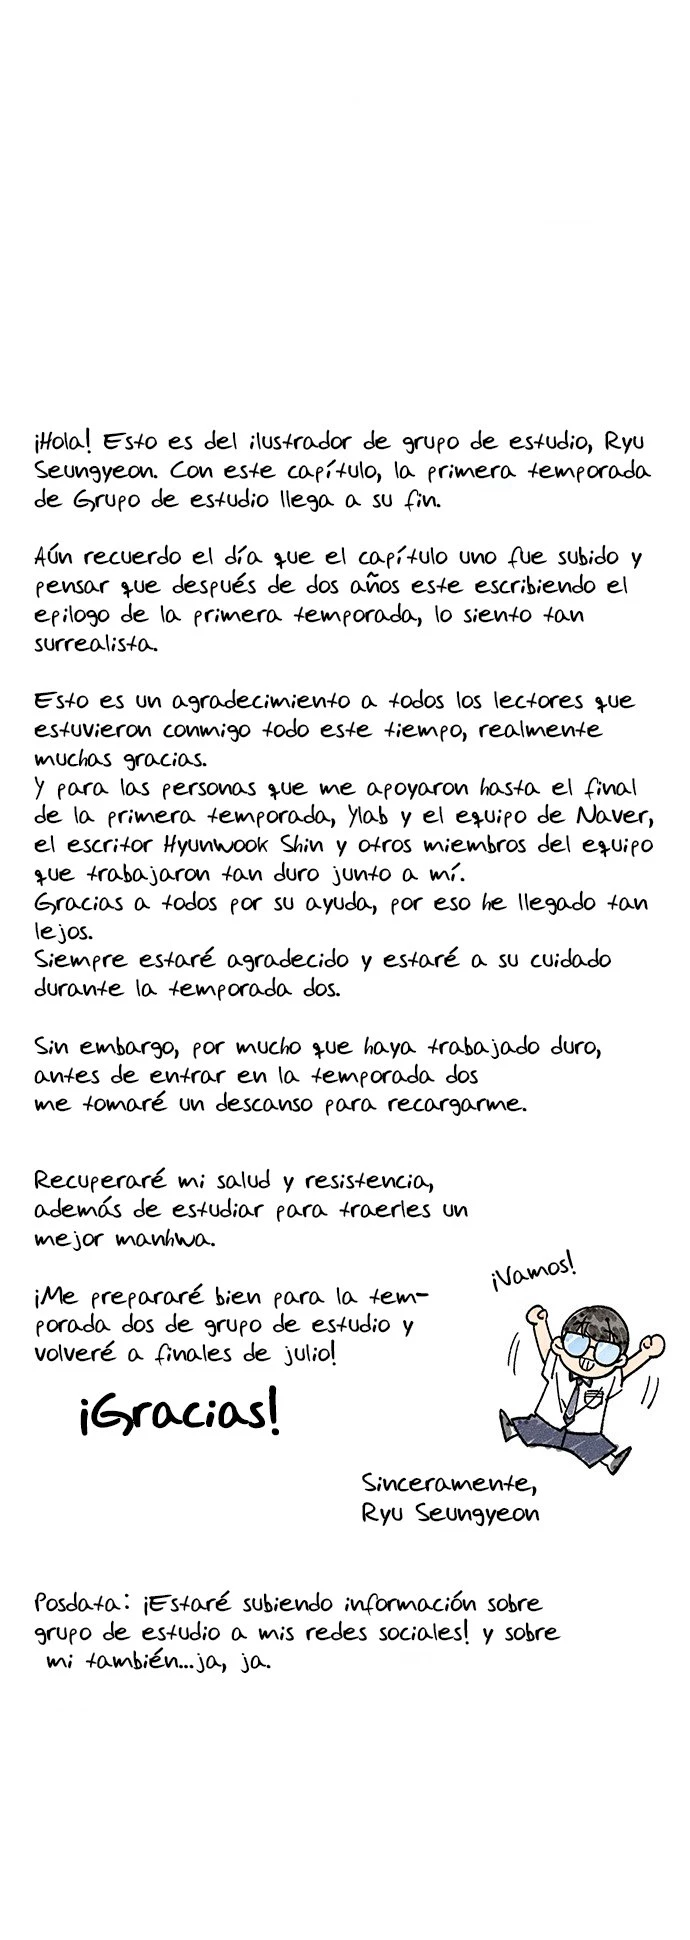 ¡Hola! Esto es del ilustrador de grupo de estudio, Ryu
Seungyeon. Con este capítulo, la primera temporada
de Grupo de estudio llega a su fin.
Aún recuerdo el día que el capítulo uno fue subido y
pensar que después de dos años este escribiendo el
epilogo de la primera temporada, lo siento tan
surrealista.
Esto es un agradecimiento a todos los lectores que
estuvieron conmigo todo este tiempo, realmente
muchas gracias.
Y para las personas que me apoyaron hasta el final
de la primera temporada, Ylab y el equipo de Naver,
el escritor Hyunwook Shin y otros miembros del equipo
que trabajaron tan duro junto a mí.
Gracias a todos por su ayuda, por eso he llegado tan
lejos.
Siempre estaré agradecido y estaré a su cuidado
durante la temporada dos.
Sin embargo, por mucho que haya trabajado duro,
antes de entrar en la temporada dos
me tomaré un descanso para recargarme.
Recuperaré mi salud y resistencia,
además de estudiar para traerles un
mejor manhwa.
¡Vamos!
¡Me prepararé bien para la tem-
porada dos de grupo de estudio y
volveré a finales de julio!
¡Gracias!
Sinceramente,
Ryu Seungyeon
Posdata: ¡Estaré subiendo información sobre
grupo de estudio a mis redes sociales! y sobre
mi también...ja, ja.